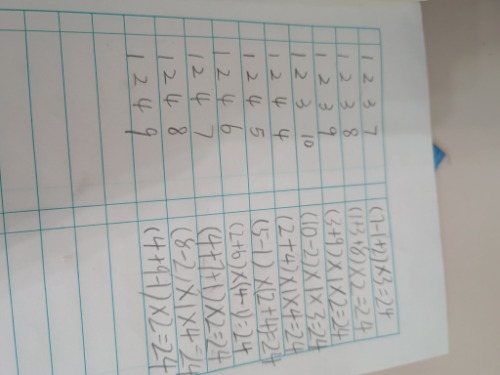 1 2 3 7 (7-1+2)×3=24
1 2 3 8 (1+3+8)×2=24
1 2 3 9 (3+9)×1×2=24
1 2 3 10 (10-2)×1×3=24
1 2 4 4 (2+4)×1×4=24
1 2 4 5 (5-1)×(2+4)=24
1 2 4 6 (2+6)×(4-1)=24
1 2 4 7 (4+7+1)×2=24
1 2 4 8 (8-2)×1×4=24
1 2 4 9 (4+9-1)×2=24